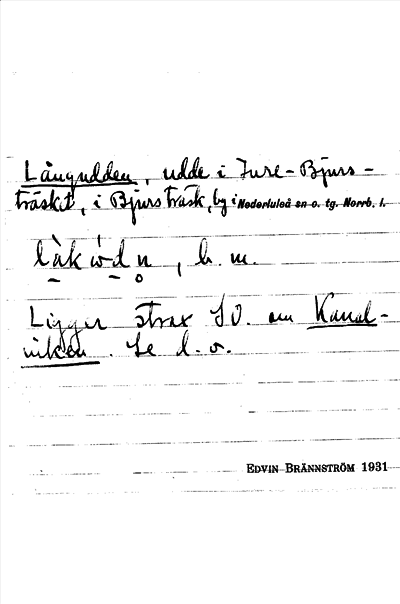 Långudden, udde i Ture-Bjurs-
träsket, i Bjursträsk, by i Nederluleå sn o. tg. Norrb. l.
b. m.
Ligger strax SO. om Kanal-
viken. Se d. o.
EDVIN BRÄNNSTRÖM 1931